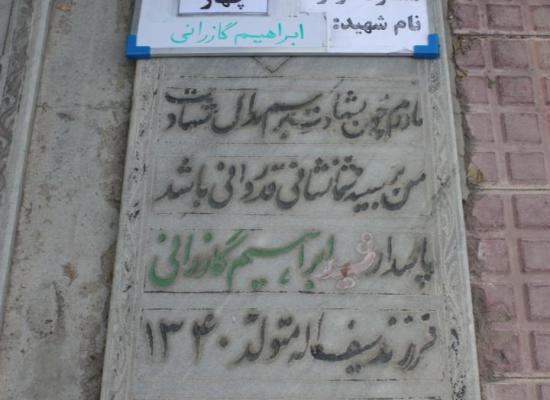 چهار
نام شهید:
ابراهیم گازرانی
مادرم چون بشهادت برسم مدال شهادت
من بر سینه حتما نشانی قدردانی باشد
پاسدار شهید ابراهیم گازرانی
فرزند سیف اله متولد ۱۳۴۰